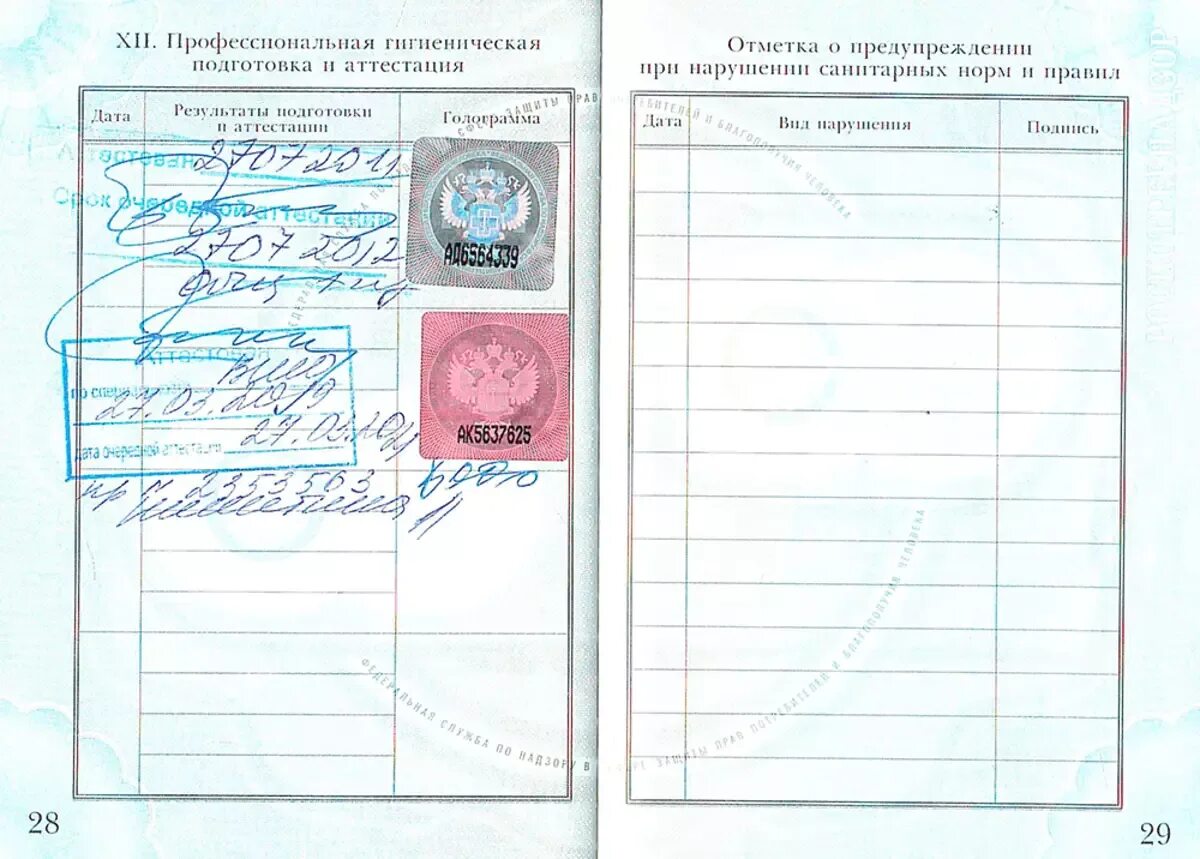 XII. Профессиональная гигиеническая
подготовка и аттестация
Дата
Результаты подготовки
и аттестации
Голограмма
Аттестован
27 07 2011
Срок очередной аттестации
27 07 2012
АД6564339
Аттестован
27.03.2019
дата очередной аттестации
27.03.2021
АК5637625
2353563
ФЕДЕРАЛЬНАЯ СЛУЖБА ПО НАДЗОРУ В СФЕРЕ ЗАЩИТЫ ПРАВ ПОТРЕБИТЕЛЕЙ И БЛАГОПОЛУЧИЯ ЧЕЛОВЕКА
28
Отметка о предупреждении
при нарушении санитарных норм и правил
Дата
Вид нарушения
Подпись
РОСПОТРЕБНАДЗОР
29